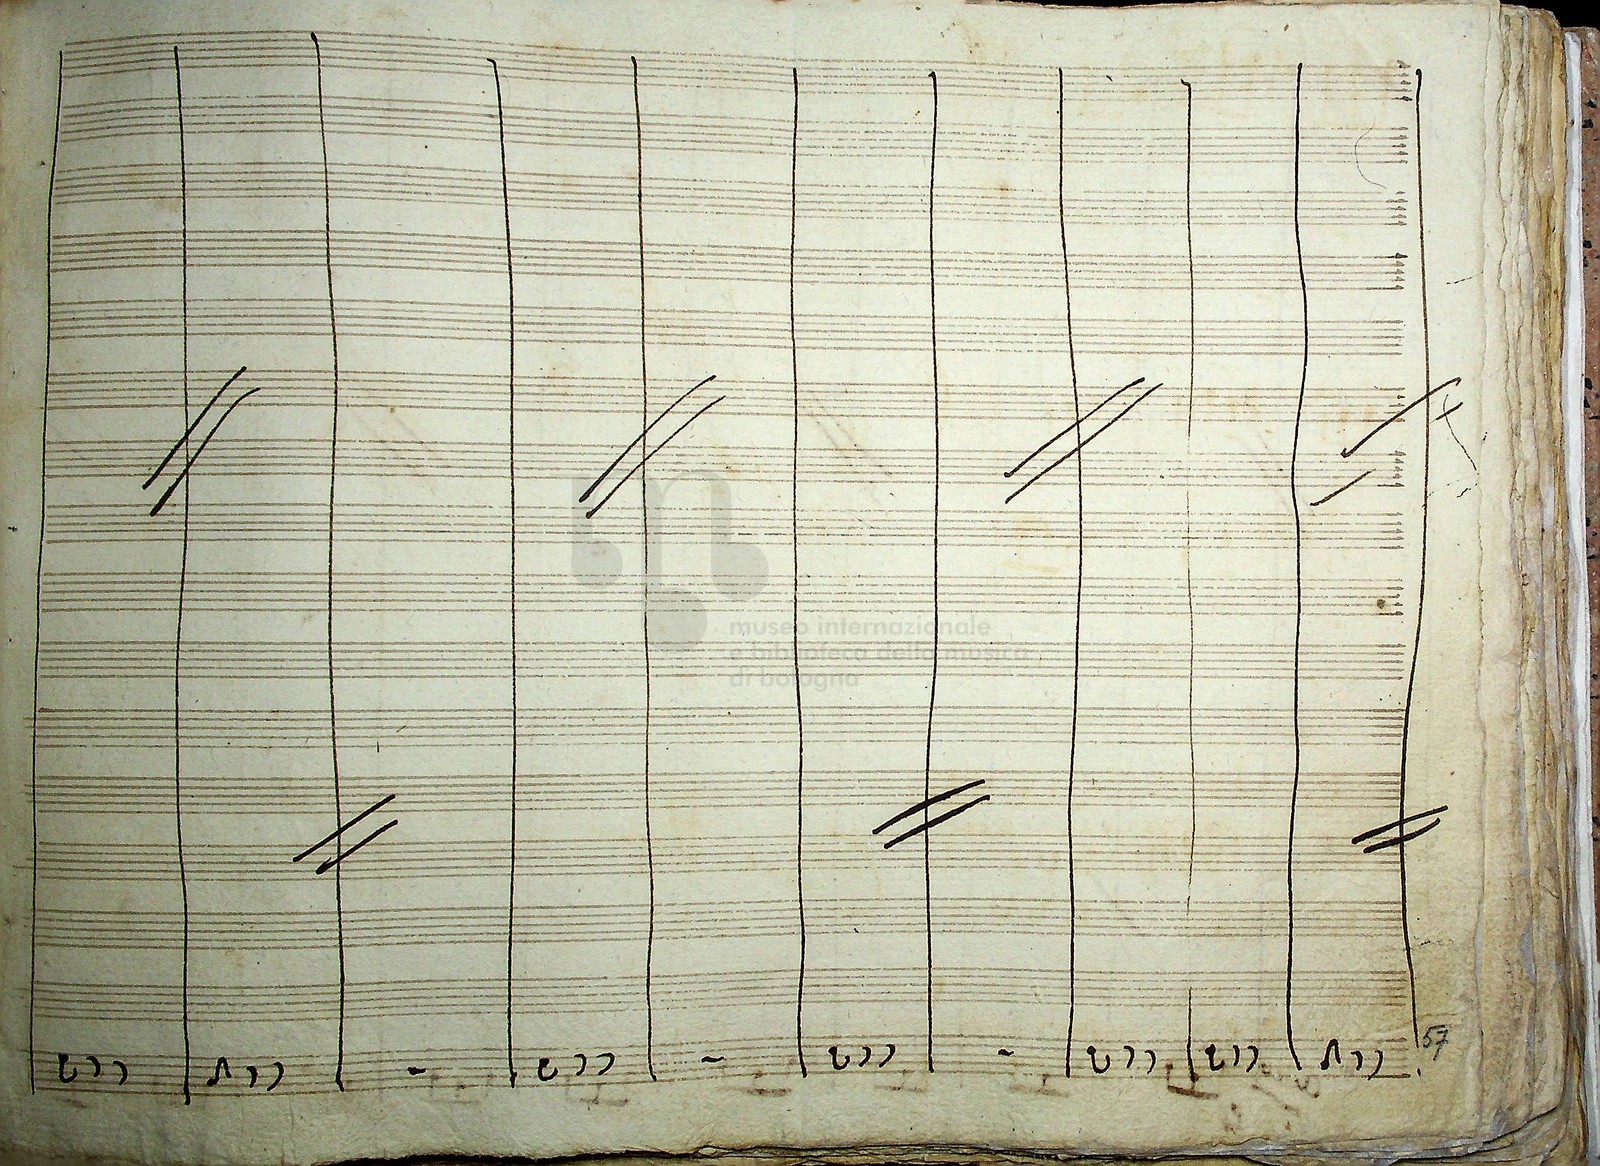 museo internazionale
e biblioteca della musica
di bologna
57